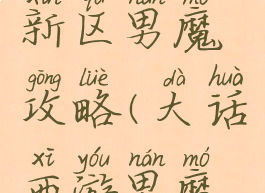 xīn qū nán mó
新区男魔
gōng lüè dà huà
攻略(大话
xī yóu nán mó
西游男魔